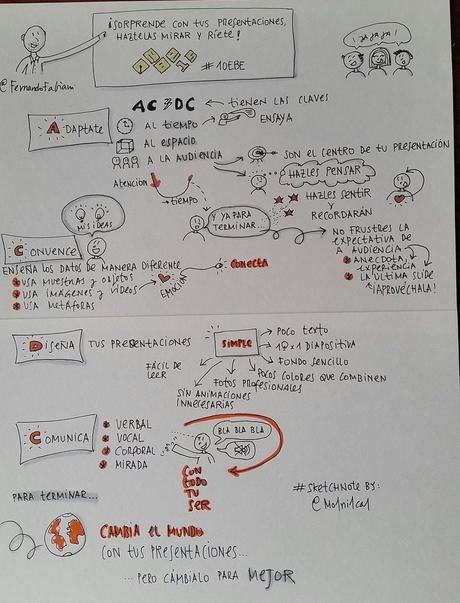 ¡SORPRENDE CON TUS PRESENTACIONES,
HAZTELAS MIRAR Y RÍETE!
#10EBE
@FernandoFabiani
¡JA JA JA!
AC DC ← TIENEN LAS CLAVES
ADAPTATE
AL TIEMPO → ENSAYA
AL ESPACIO
A LA AUDIENCIA
SON EL CENTRO DE TU PRESENTACIÓN
HAZLES PENSAR
HAZLES SENTIR
Y
RECORDARÁN
Atención
→ tiempo
MIS IDEAS
Y YA PARA
TERMINAR...
NO FRUSTRES LA
EXPECTATIVA DE
A AUDIENCIA
ANECDOTA,
EXPERIENCIA
LA ÚLTIMA SLIDE
¡APROVÉCHALA!
CONVENCE
ENSEÑA LOS DATOS DE MANERA DIFERENTE
USA MUESTRAS Y OBJETOS
USA IMÁGENES Y VÍDEOS
USA METÁFORAS
EMOCIÓN
CONECTA
DISEÑA TUS PRESENTACIONES
SIMPLE
POCO TEXTO
1 x 1 DIAPOSITIVA
FONDO SENCILLO
POCOS COLORES QUE COMBINEN
FOTOS PROFESIONALES
SIN ANIMACIONES
INNECESARIAS
FÁCIL DE
LEER
COMUNICA
VERBAL
VOCAL
CORPORAL
MIRADA
BLA BLA BLA
CON
TODO
TU
SER
#SKETCHNOTE BY:
PARA TERMINAR...
CAMBIA EL MUNDO
CON TUS PRESENTACIONES...
...PERO CÁMBIALO PARA MEJOR